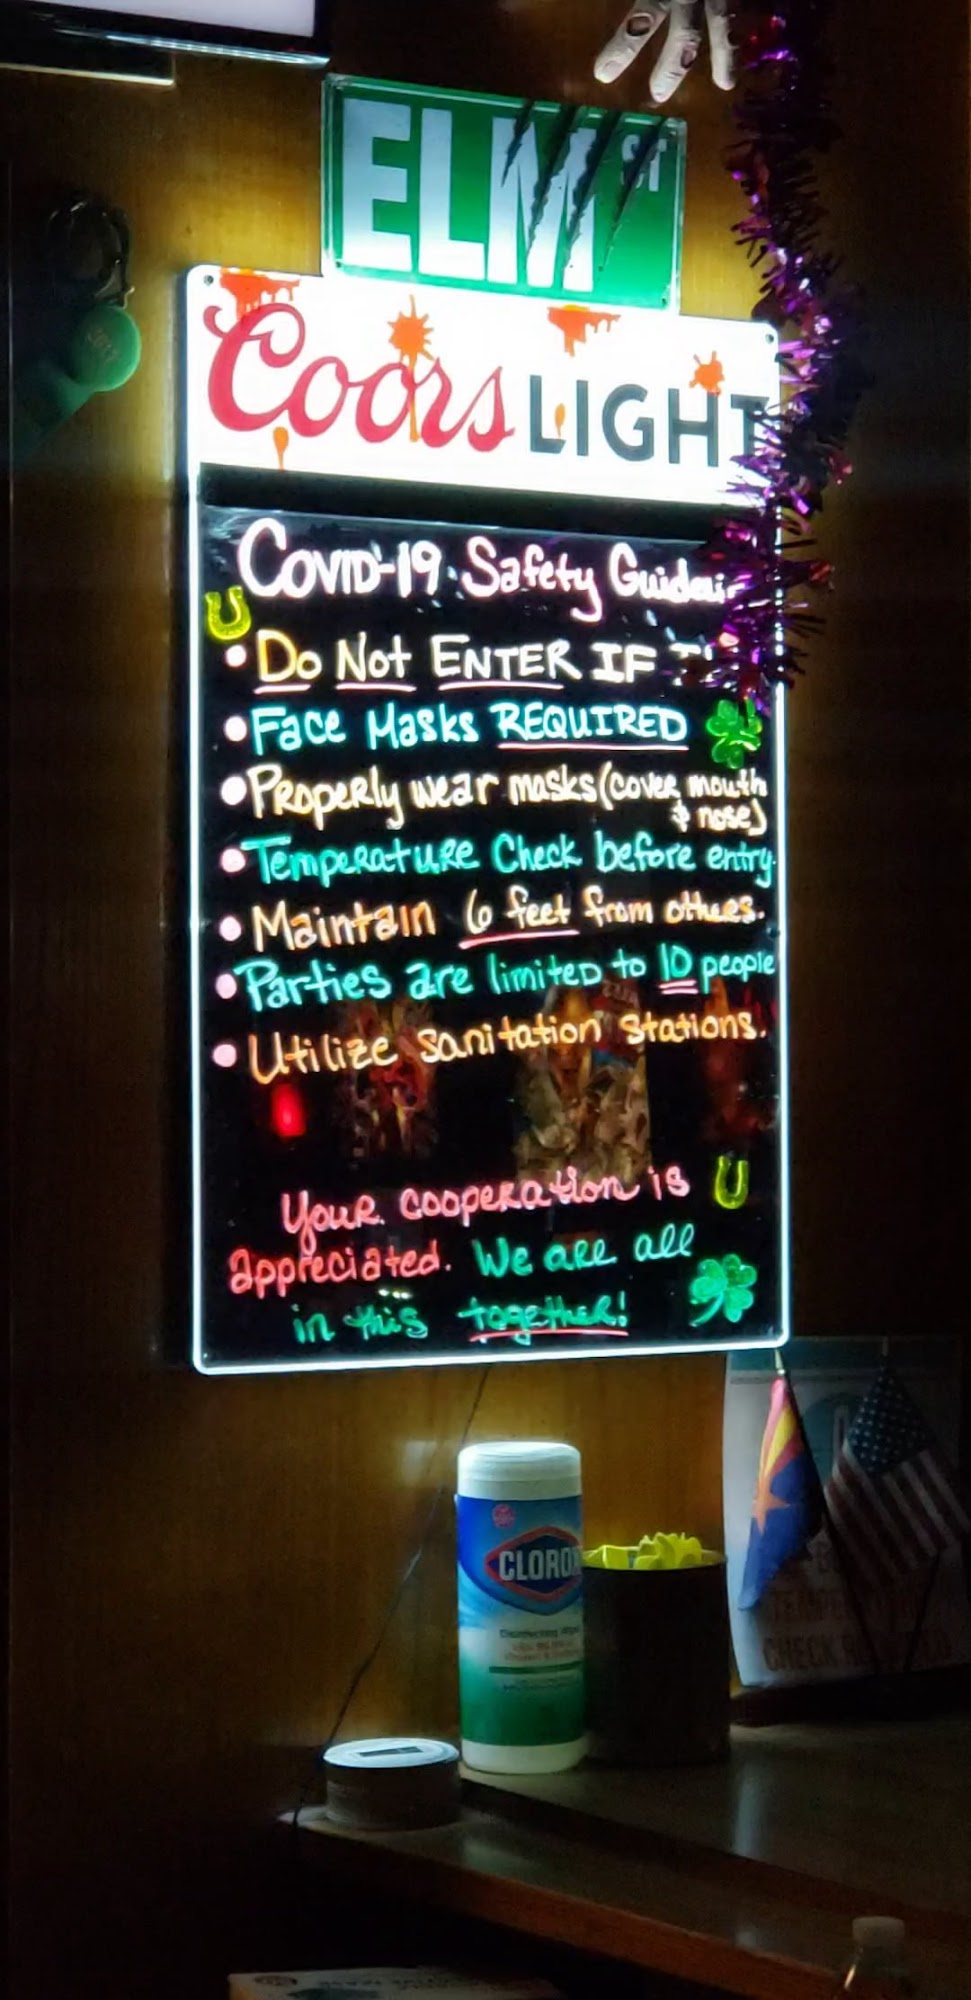 ELM ST
Coors LIGHT
COVID-19 Safety
• Do Not ENTER IF
• Face Masks REQUIRED
• Properly wear masks (cover mouth
& nose)
• Temperature Check before entry.
• Maintain 6 feet from others.
• Parties are limited to 10 people
• Utilize sanitation stations.
Your cooperation is
appreciated. We are all
in this together!
CLOROX
Disinfecting
CHECK